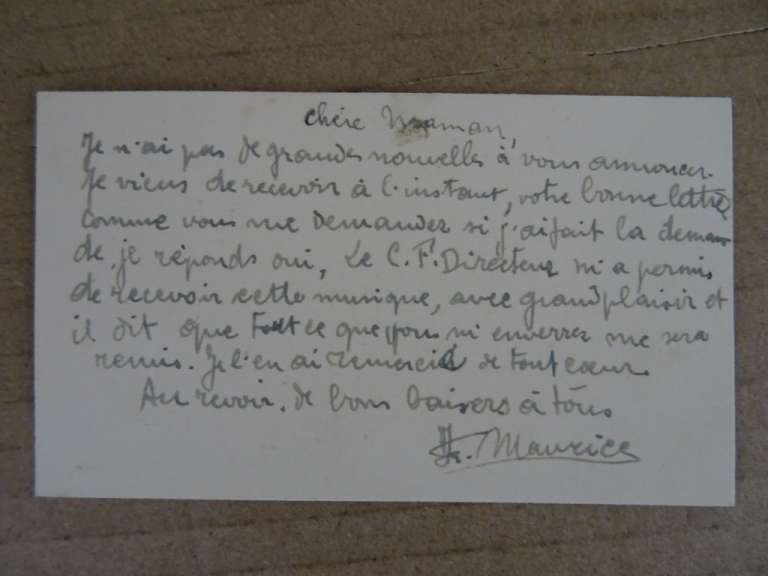 Chère Maman,
Je n'ai pas de grandes nouvelles à vous annoncer.
Je viens de recevoir à l'instant, votre bonne lettre,
comme vous me demander si j'ai fait la deman
de, je réponds oui, Le C. F. Directeur m'a permis
de recevoir cette musique, avec grand plaisir et
il dit que tout ce que vous m'enverrez me sera
remis. Je l'en ai remercié de tout cœur.
Au revoir. de bons baisers à tous
Fr. Maurice